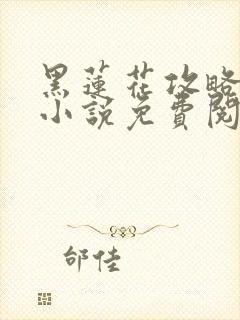 黑蓮花攻略
小說免費閱
邰佳